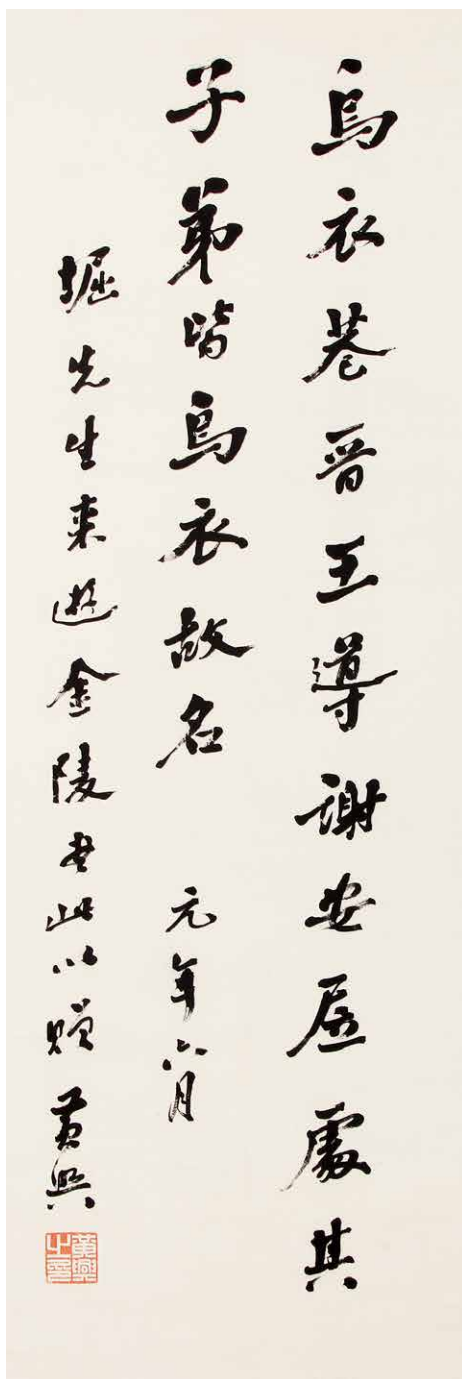 烏衣巷晉王導謝安居處其
子弟皆烏衣故名 元年六月
堀先生來遊金陵書此以贈 黃興
黃興之印